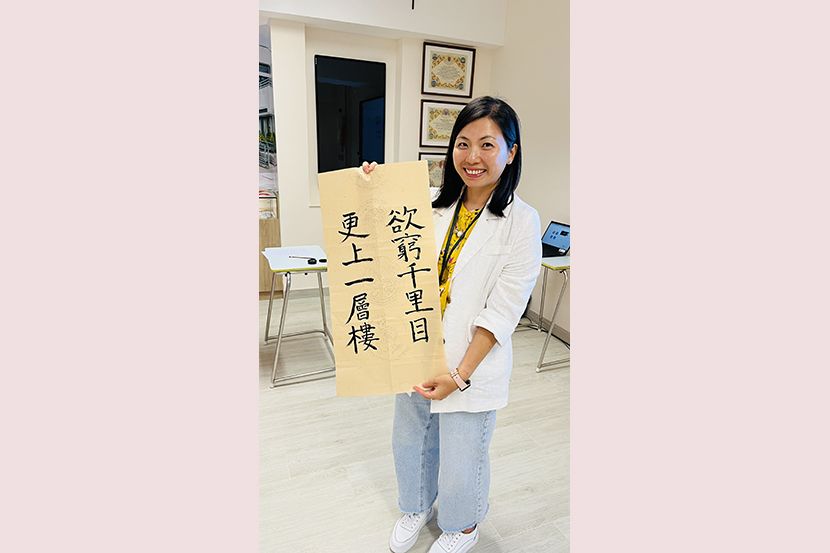 欲窮千里目
更上一層樓